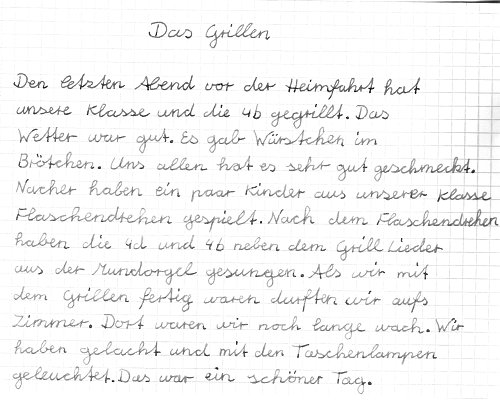 Das Grillen
Den letzten Abend vor der Heimfahrt hat
unsere Klasse und die 4b gegrillt. Das
Wetter war gut. Es gab Würstchen im
Brötchen. Uns allen hat es sehr gut geschmeckt.
Nacher haben ein paar Kinder aus unserer Klasse
Flaschendrehen gespielt. Nach dem Flaschendrehen
haben die 4d und 4b neben dem Grill Lieder
aus der Mundorgel gesungen. Als wir mit
dem Grillen fertig waren durften wir aufs
Zimmer. Dort waren wir noch lange wach. Wir
haben gelacht und mit den Taschenlampen
geleuchtet. Das war ein schöner Tag.